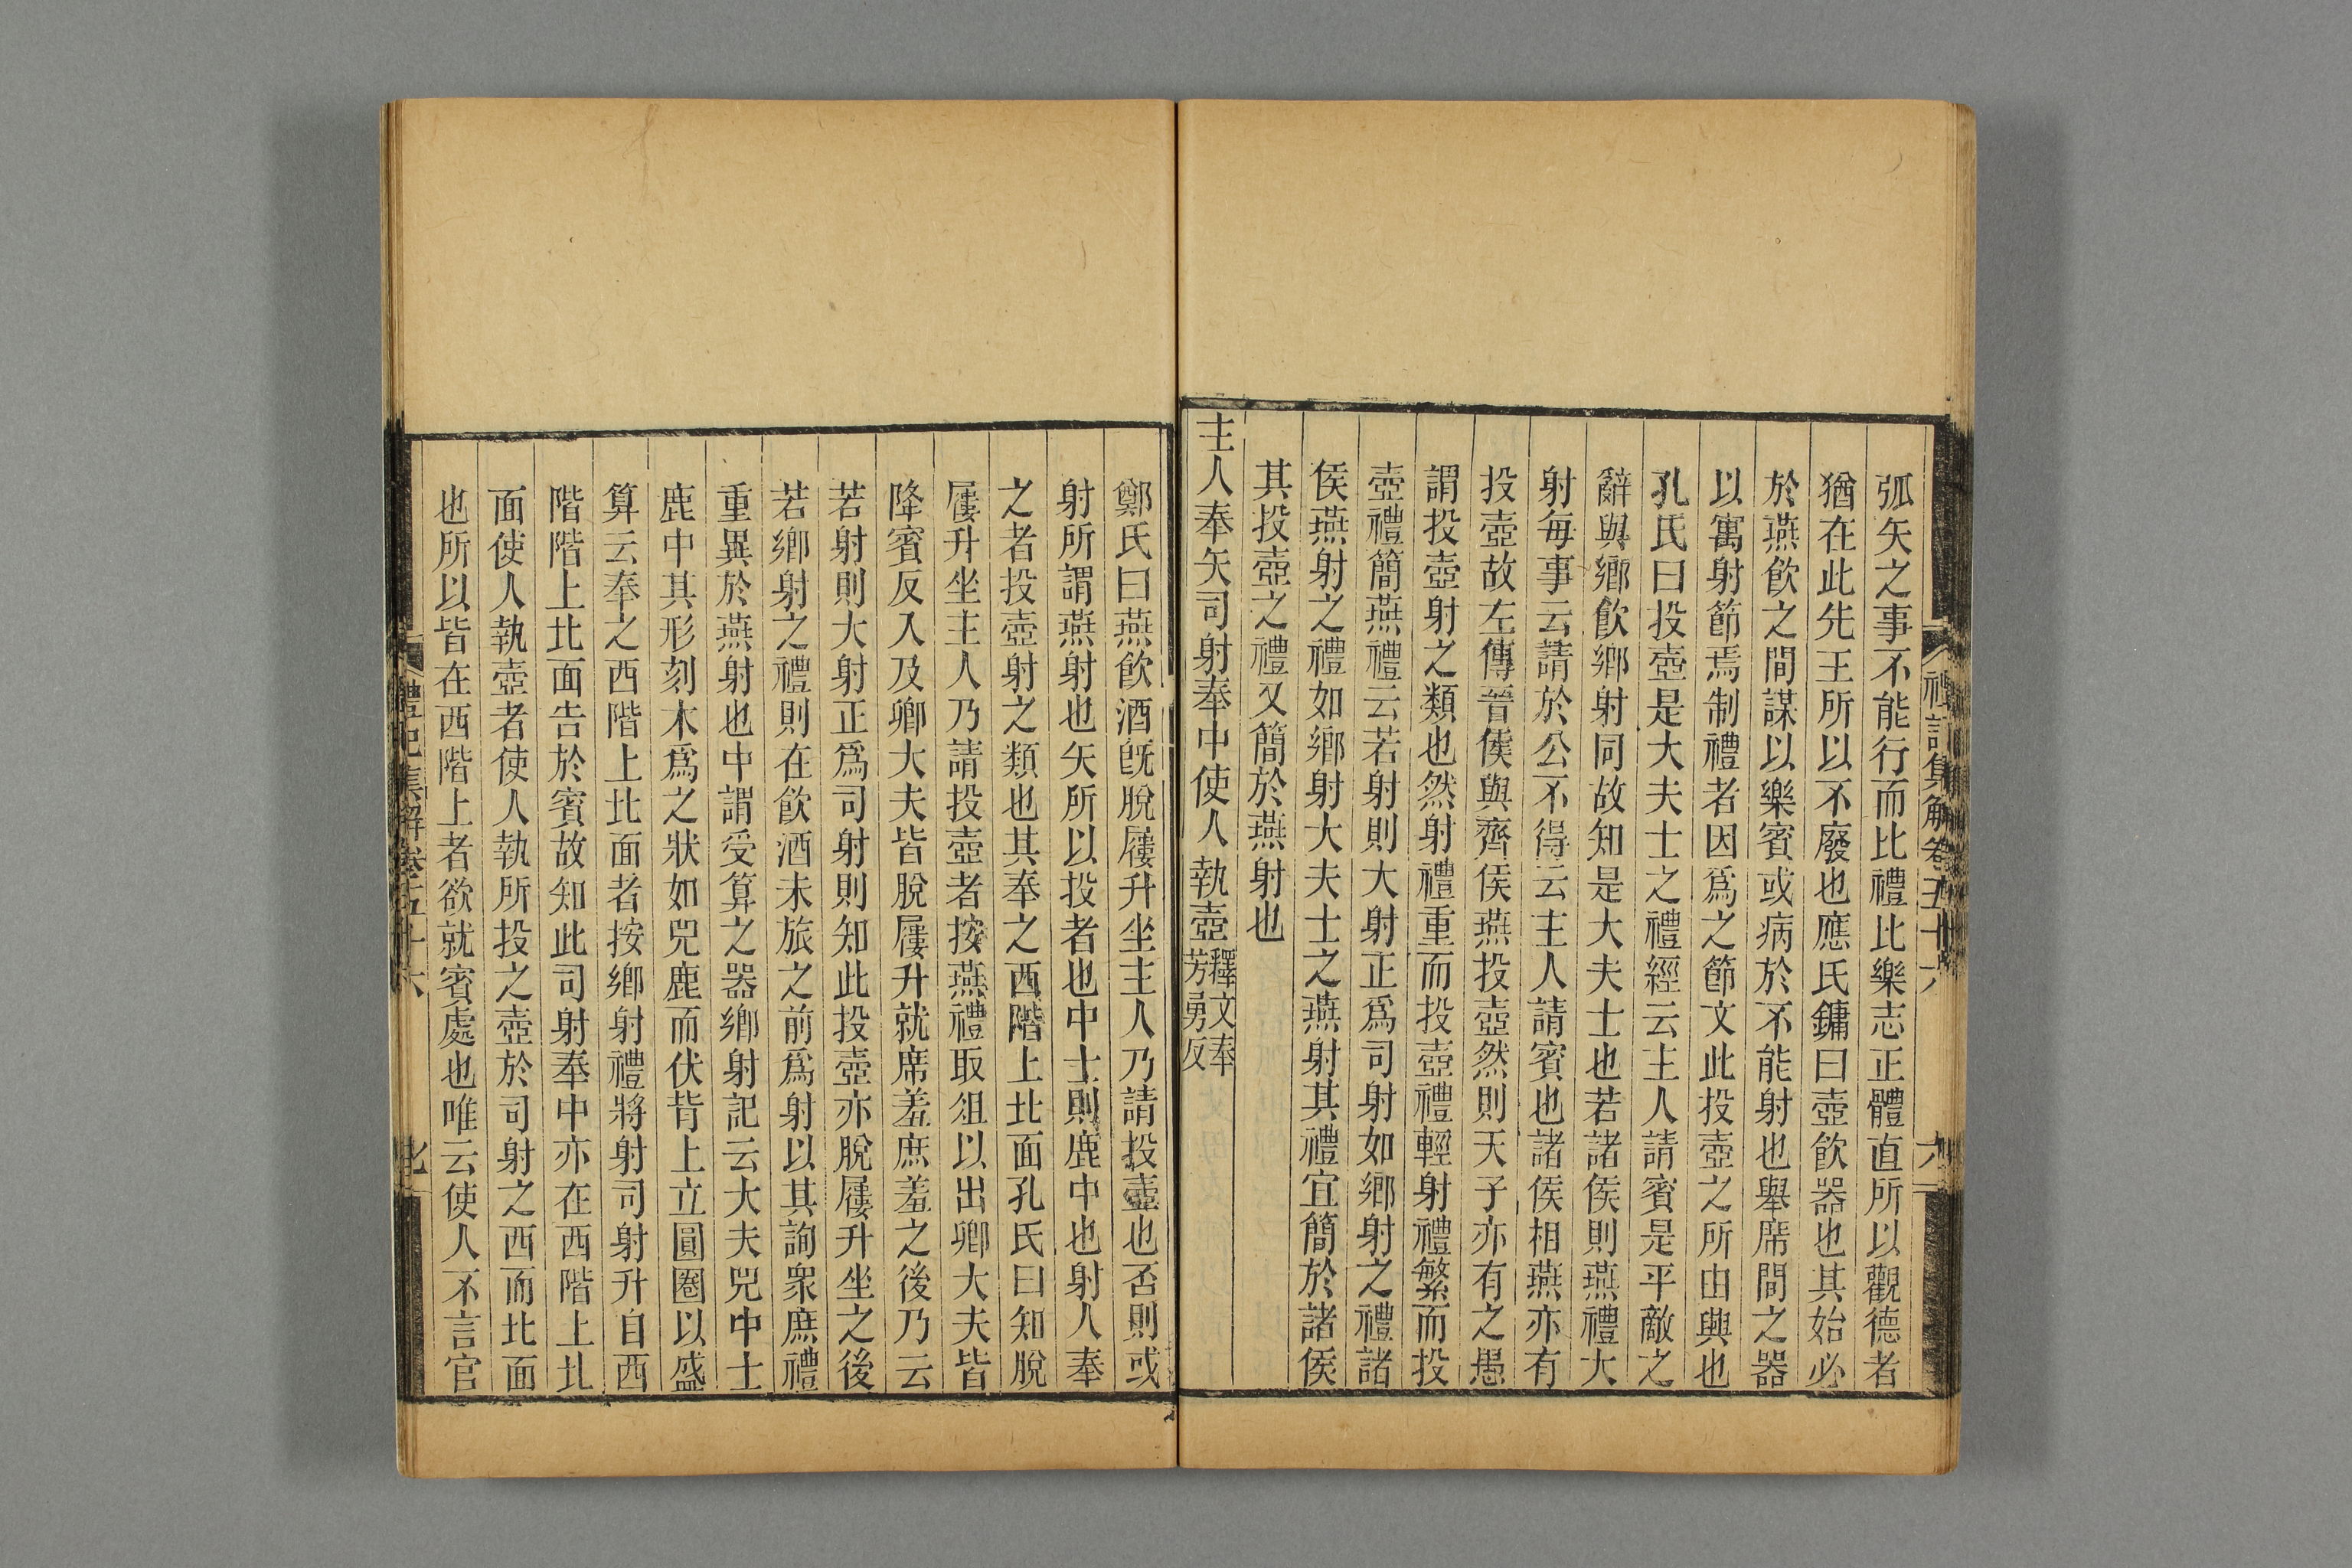 禮記集解卷五十六
六
弧矢之事不能行而比禮比樂志正體直所以觀德者
猶在此先王所以不廢也應氏鏞曰壺飲器也其始必
於燕飲之間謀以樂賓或病於不能射也舉席間之器
以寓射節焉制禮者因爲之節文此投壺之所由與也
孔氏曰投壺是大夫士之禮經云主人請賓是平敵之
辭與鄉飲鄉射同故知是大夫士也若諸侯則燕禮大
射每事云請於公不得云主人請賓也諸侯相燕亦有
投壺故左傳晉侯與齊侯燕投壺然則天子亦有之愚
謂投壺射之類也然射禮重而投壺禮輕射禮繁而投
壺禮簡燕禮云若射則大射正爲司射如鄉射之禮諸
侯燕射之禮如鄉射大夫士之燕射其禮宜簡於諸侯
其投壺之禮又簡於燕射也
主人奉矢司射奉中使人執壺釋文奉
芳勇反
鄭氏曰燕飲酒旣脫屨升坐主人乃請投壺也否則或
射所謂燕射也矢所以投者也中士則鹿中也射人奉
之者投壺射之類也其奉之西階上北面孔氏曰知脫
屨升坐主人乃請投壺者按燕禮取俎以出卿大夫皆
降賓反入及卿大夫皆脫屨升就席羞庶羞之後乃云
若射則大射正爲司射則知此投壺亦脫屨升坐之後
若鄉射之禮則在飲酒未旅之前爲射以其詢衆庶禮
重異於燕射也中謂受算之器鄉射記云大夫兕中士
鹿中其形刻木爲之狀如兕鹿而伏背上立圓圈以盛
算云奉之西階上北面者按鄉射禮將射司射升自西
階階上北面告於賓故知此司射奉中亦在西階上北
面使人執壺者使人執所投之壺於司射之西而北面
也所以皆在西階上者欲就賓處也唯云使人不言官
禮記集解卷五十六